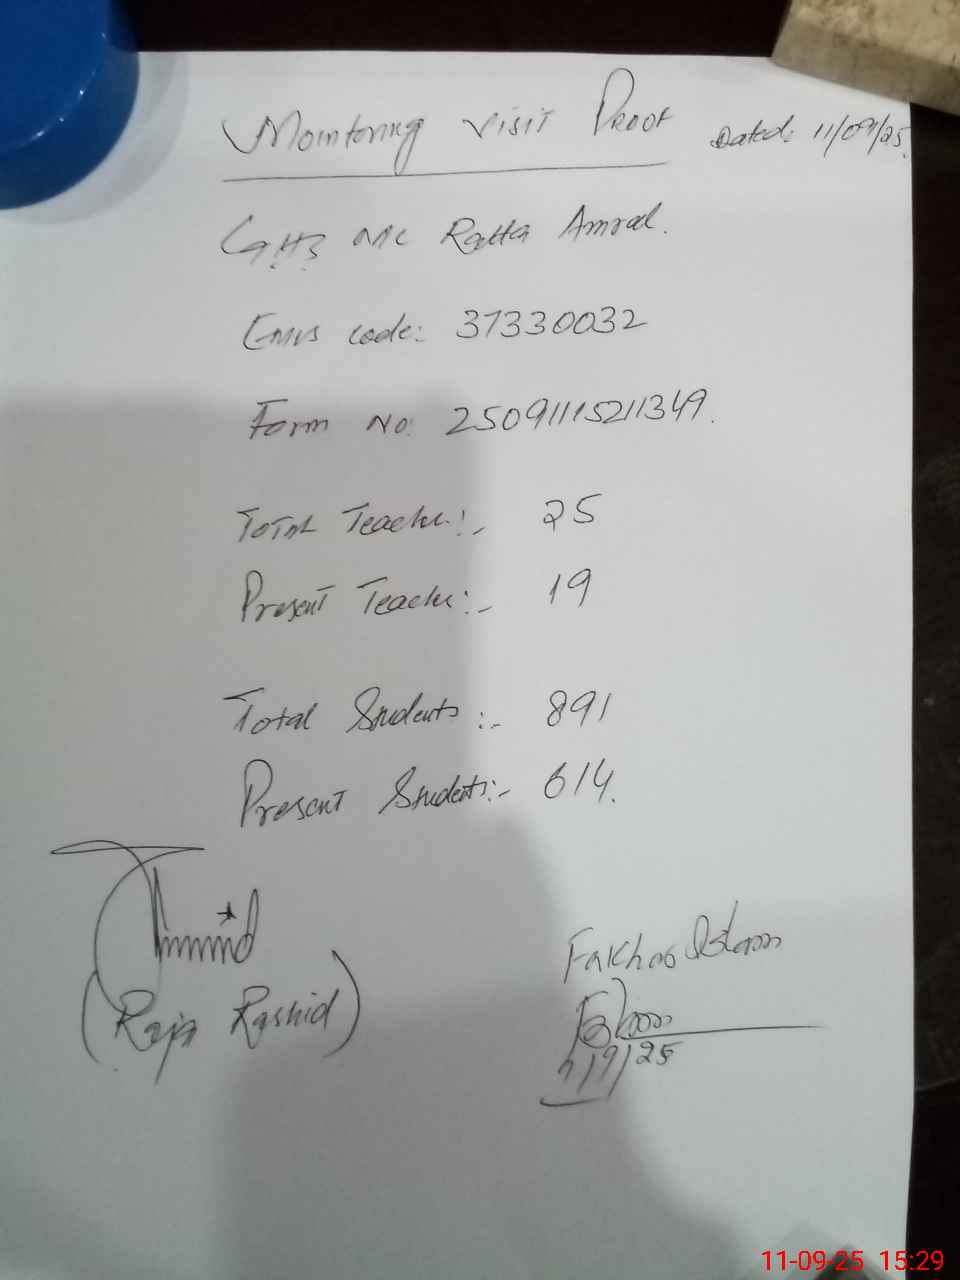 Monitoring Visit Proof
Dated: 11/09/25.
GHS MC Ratta Amral.
Emis code: 37330032
Form No: 25091115211349.
Total Teacher:- 25
Present Teacher:- 19
Total Students:- 891
Present Students:- 614.
(Raja Rashid)
Fakhar Islam
11/9/25
11-09-25 15:29